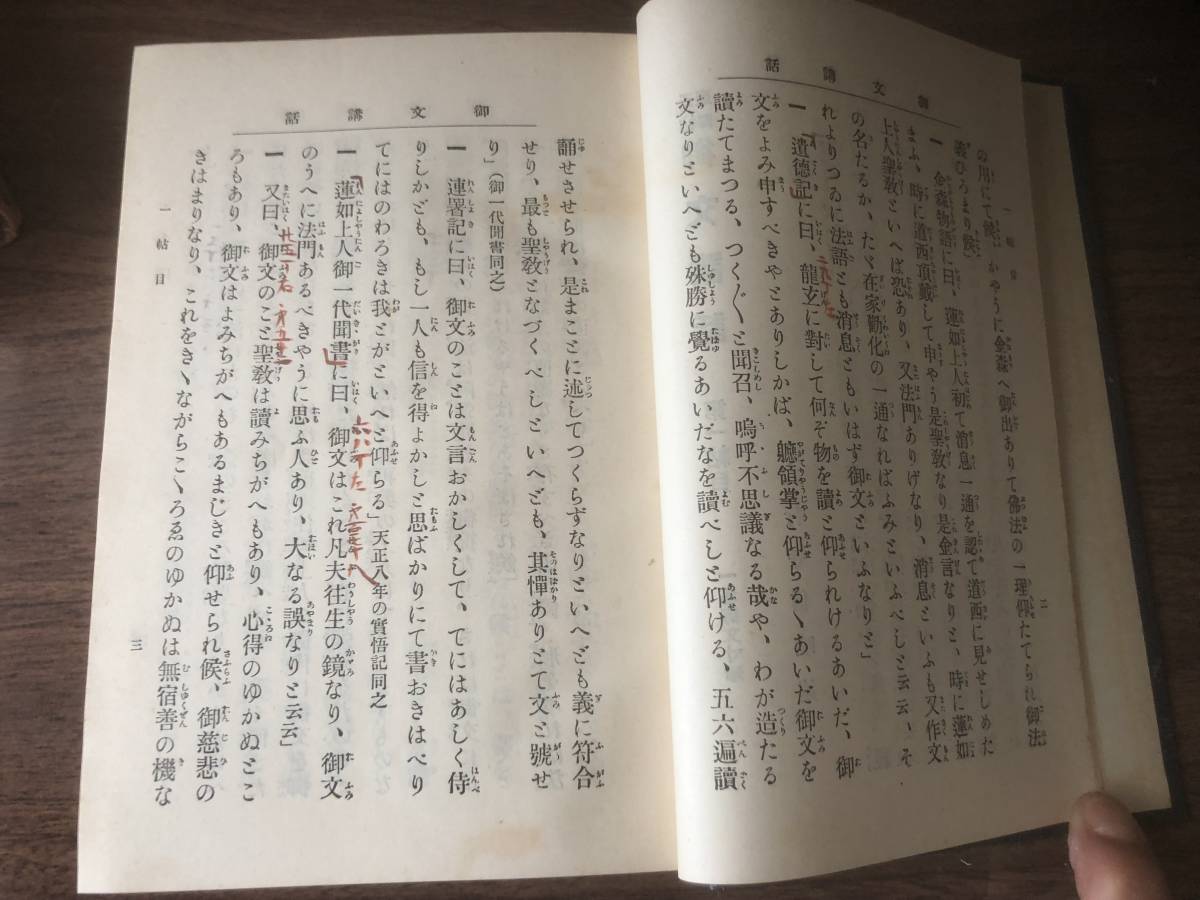 御文講話
の用にて候、かやうに金森へ御出ありて佛法の一理仰たてられ御法
義ひろまり候」
一　金森物語に曰、蓮如上人初て消息一通を認て道西に見せしめた
まふ、時に道西頂戴して申やう是聖敎なり是金言なりと、時に蓮如
上人聖敎といへば恐あり、又法門ありげなり、消息といふも又作文
の名たるか、たゞ在家勸化の一通なればふみといふべしと云云、そ
れよりつるに法語とも消息ともいはず御文といふなりと」
一　遺德記に曰、龍玄に對して何ぞ物を讀と仰られけるあいだ、御
文をよみ申すべきやとありしかば、軈領掌と仰らるゝあいだ御文を
讀たてまつる、つくづくと聞召、嗚呼不思議なる哉や、わが造たる
文なりといへども殊勝に覺るあいだなを讀べしと仰ける、五六遍讀
御文講話
誦せさせられ、是まことに述してつくらずなりといへども義に符合
せり、最も聖敎となづくべしといへども、其憚ありとて文と號せ
り」(御一代聞書同之)
一　連署記に曰、御文のことは文言おかしくして、てにはあしく侍
りしかども、もし一人も信を得よかしと思ばかりにて書おきはべり
てにはのわろきは我とがといへと仰らる」天正八年の實悟記同之
一　蓮如上人御一代聞書に曰、御文はこれ凡夫往生の鏡なり、御文
のうへに法門あるべきやうに思ふ人あり、大なる誤なりと云云」
一　又曰、御文のこと聖敎は讀みちがへもあり、心得のゆかぬとこ
ろもあり、御文はよみちがへもあるまじきと仰せられ候、御慈悲の
きはまりなり、これをきゝながらこゝろゑのゆかぬは無宿善の機な
一帖目
三